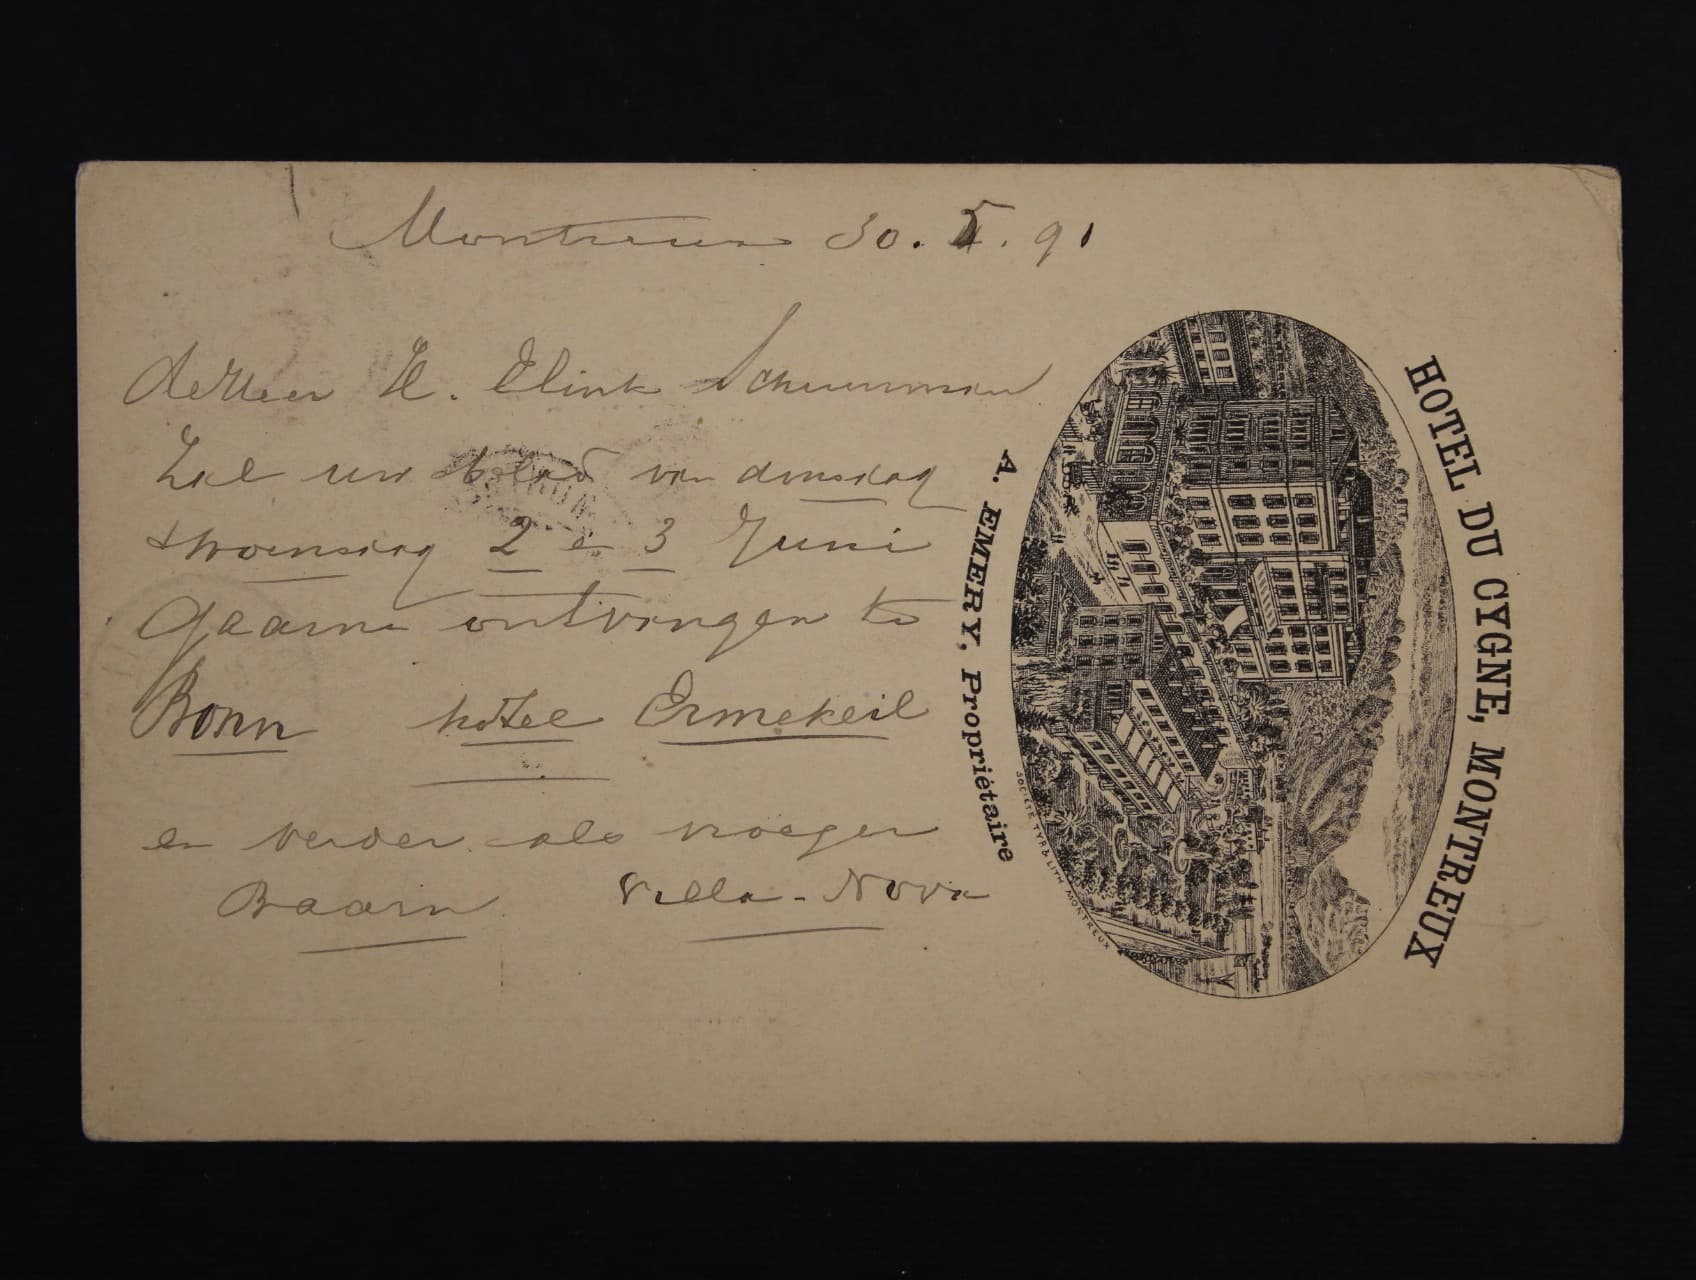 Montreux 30. 5. 91
de Heer H. Elink Schuurman
Zal uw blad van dinsdag
& woensdag 2 en 3 Juni
gaarne ontvangen te
Bonn hôtel Ermekeil
en verder als vroeger
Baarn Villa-Nova
HOTEL DU CYGNE, MONTREUX
A. EMERY, Propriétaire
SOCIÉTÉ TYP. & LITH. MONTREUX